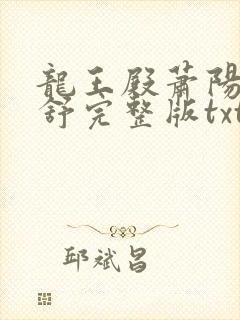 龍王殿蕭陽
舒完整版txt
邱斌昌